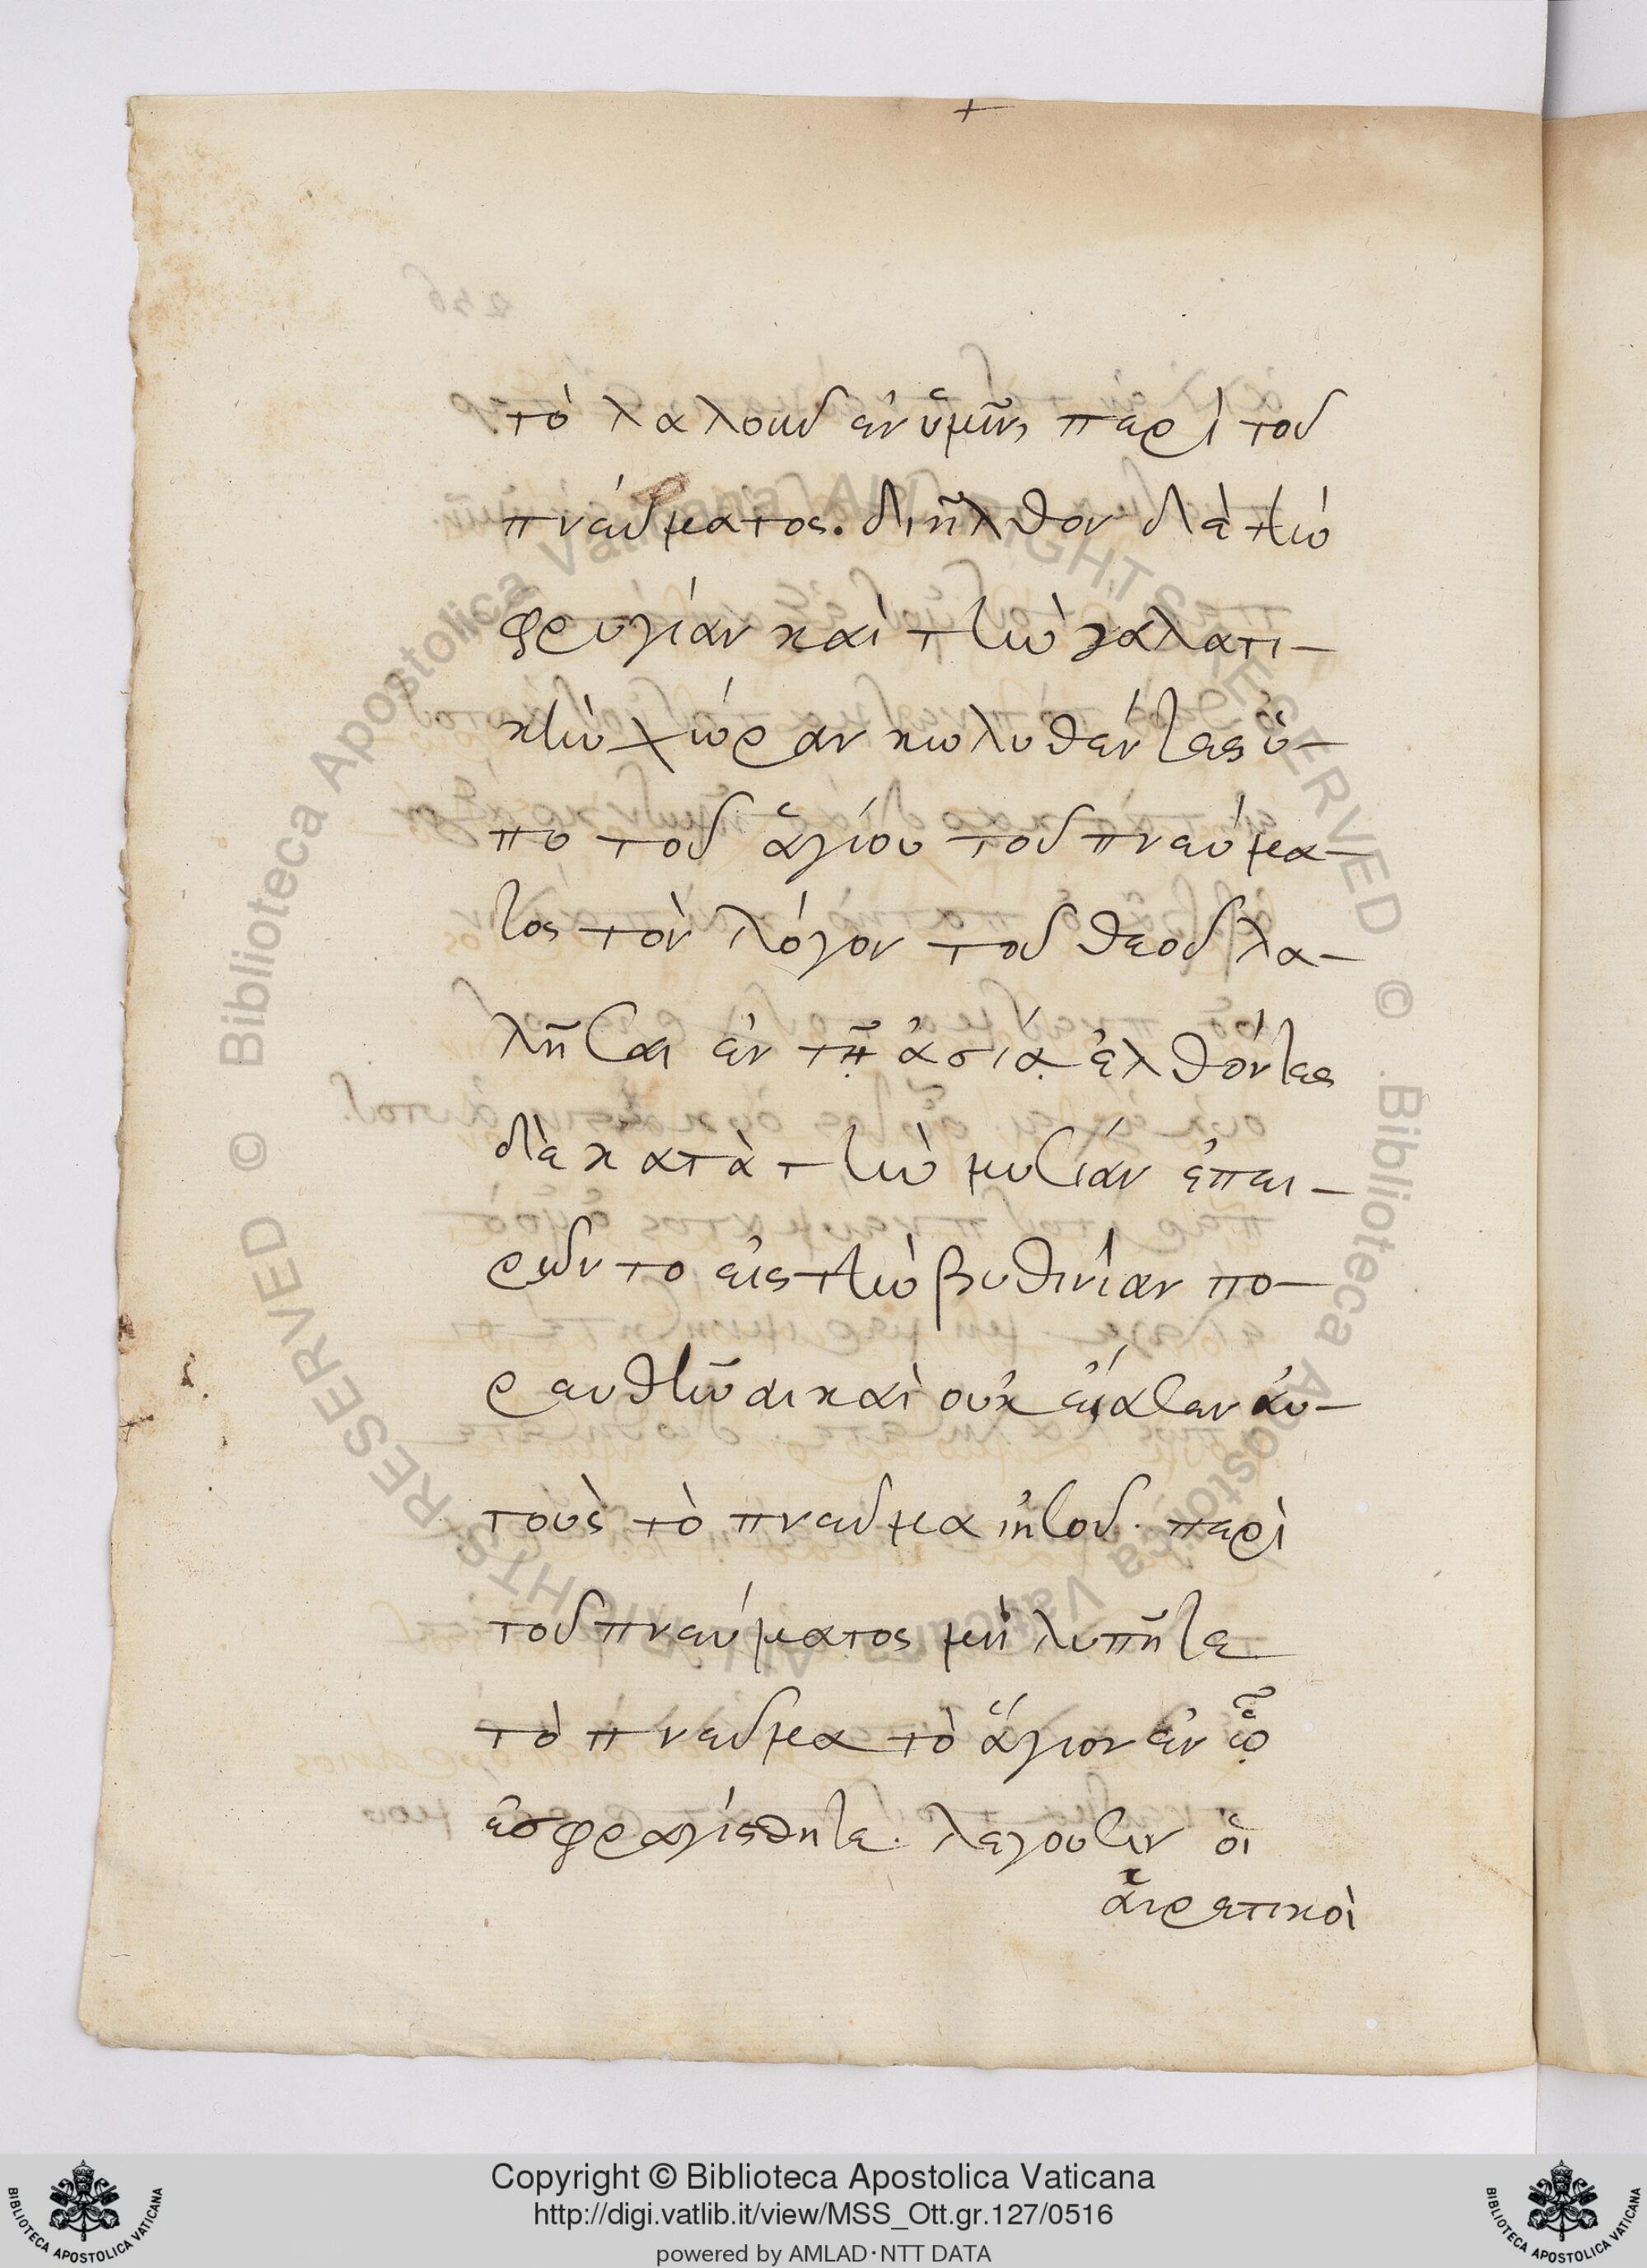 τὸ λαλοῦν ἐν ὑμῖν, περὶ τοῦ
πνεύματος. διῆλθον δὲ τὴν
φρυγίαν καὶ τὴν γαλατι-
κὴν χώραν κωλυθέντες ὑ-
πο τοῦ ἁγίου τοῦ πνεύμα-
τος τὸν λόγον τοῦ θεοῦ λα-
λῆσαι ἐν τῇ ἀσίᾳ ἐλθόντες
δὲ κατὰ τὴν μυσίαν ἐπει-
ρῶντο εἰς τὴν βυθινίαν πο-
ρευθῆναι καὶ οὐκ εἴασεν αὐ-
τοὺς τὸ πνεῦμα ἰησοῦ. περὶ
τοῦ πνεύματος μὴ λυπῆτε
τὸ πνεῦμα τὸ ἅγιον ἐν ᾧ
ἐσφραγίσθητε. λεγουσιν οἱ
αἱρετικοὶ
Copyright © Biblioteca Apostolica Vaticana
http://digi.vatlib.it/view/MSS_Ott.gr.127/0516
powered by AMLAD·NTT DATA
BIBLIOTECA APOSTOLICA VATICANA
BIBLIOTECA APOSTOLICA VATICANA
© Biblioteca Apostolica Vaticana ALL RIGHTS RESERVED
© Biblioteca Apostolica Vaticana ALL RIGHTS RESERVED